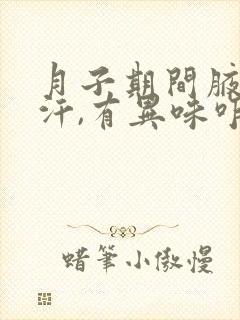 月子期間腋
汗,有異味明
蜡筆小傲慢